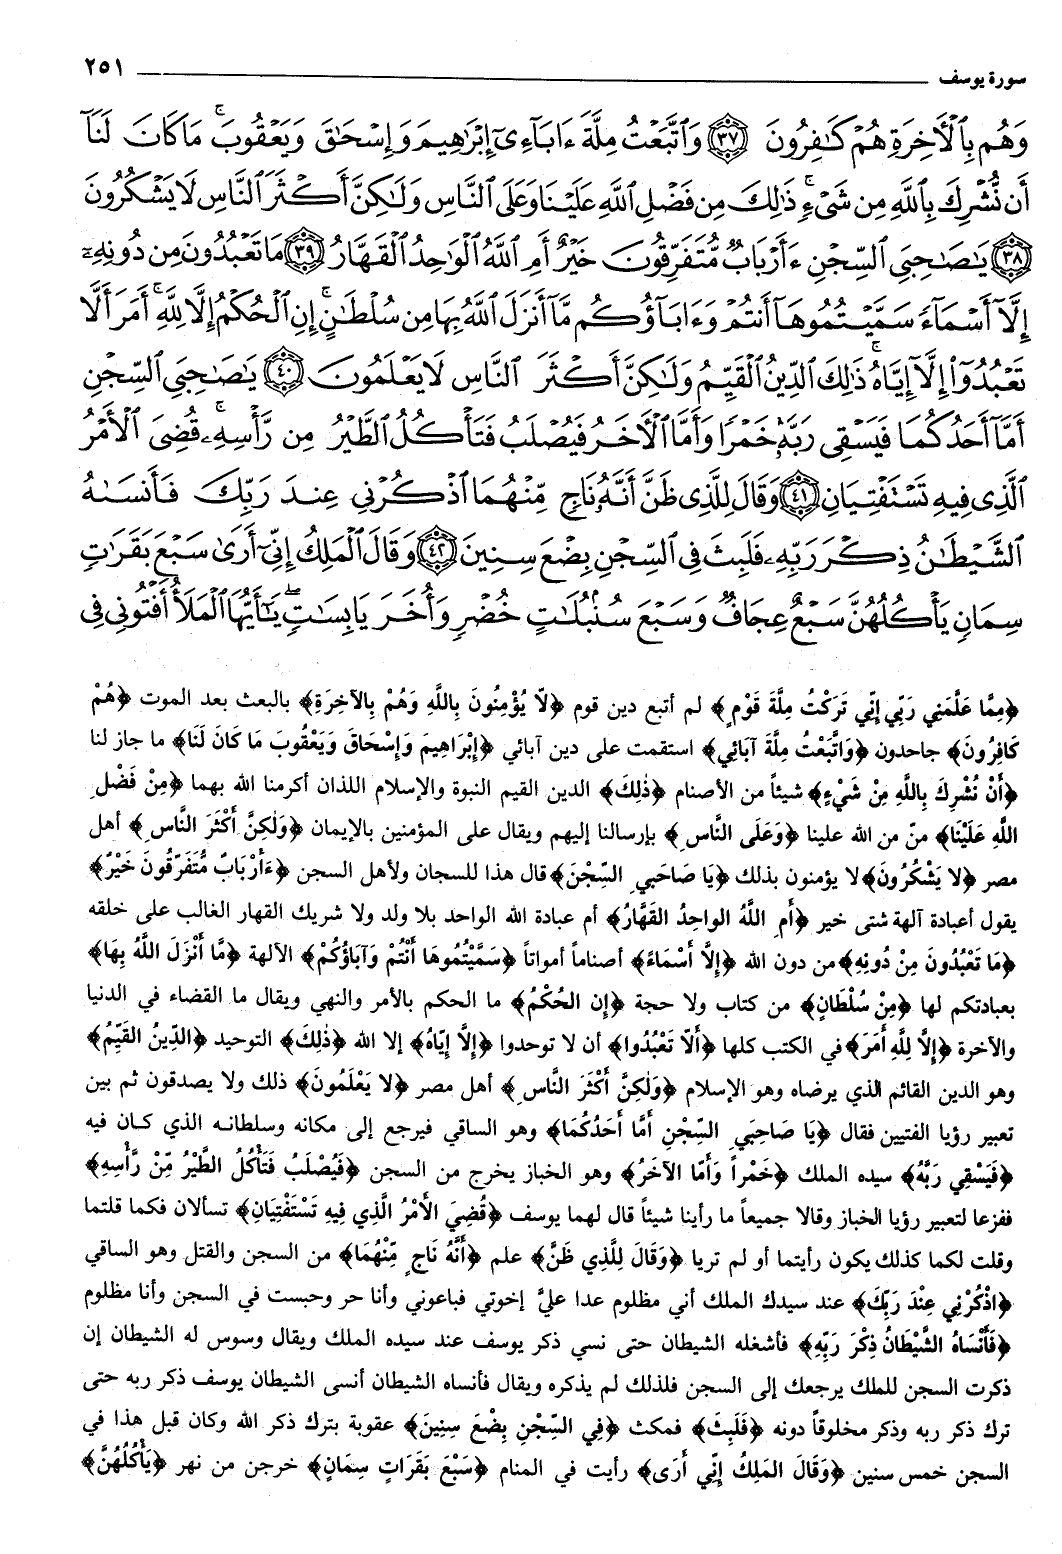 سورة يوسف ٢٥١
وَهُم بِالْآخِرَةِ هُمْ كَافِرُونَ ﴿٣٧﴾ وَاتَّبَعْتُ مِلَّةَ ءَابَاءِي إِبْرَاهِيمَ وَإِسْحَاقَ وَيَعْقُوبَ ۚ مَا كَانَ لَنَا
أَن نُّشْرِكَ بِاللَّهِ مِن شَيْءٍ ۚ ذَٰلِكَ مِن فَضْلِ اللَّهِ عَلَيْنَا وَعَلَى النَّاسِ وَلَٰكِنَّ أَكْثَرَ النَّاسِ لَا يَشْكُرُونَ
﴿٣٨﴾ يَا صَاحِبَيِ السِّجْنِ ءَأَرْبَابٌ مُّتَفَرِّقُونَ خَيْرٌ أَمِ اللَّهُ الْوَاحِدُ الْقَهَّارُ ﴿٣٩﴾ مَا تَعْبُدُونَ مِن دُونِهِ
إِلَّا أَسْمَاءً سَمَّيْتُمُوهَا أَنتُمْ وَءَابَاؤُكُم مَّا أَنزَلَ اللَّهُ بِهَا مِن سُلْطَانٍ ۚ إِنِ الْحُكْمُ إِلَّا لِلَّهِ ۚ أَمَرَ أَلَّا
تَعْبُدُوا إِلَّا إِيَّاهُ ۚ ذَٰلِكَ الدِّينُ الْقَيِّمُ وَلَٰكِنَّ أَكْثَرَ النَّاسِ لَا يَعْلَمُونَ ﴿٤٠﴾ يَا صَاحِبَيِ السِّجْنِ
أَمَّا أَحَدُكُمَا فَيَسْقِي رَبَّهُ خَمْرًا وَأَمَّا الْآخَرُ فَيُصْلَبُ فَتَأْكُلُ الطَّيْرُ مِن رَّأْسِهِ ۚ قُضِيَ الْأَمْرُ
الَّذِي فِيهِ تَسْتَفْتِيَانِ ﴿٤١﴾ وَقَالَ لِلَّذِي ظَنَّ أَنَّهُ نَاجٍ مِّنْهُمَا اذْكُرْنِي عِندَ رَبِّكَ فَأَنسَاهُ
الشَّيْطَانُ ذِكْرَ رَبِّهِ فَلَبِثَ فِي السِّجْنِ بِضْعَ سِنِينَ ﴿٤٢﴾ وَقَالَ الْمَلِكُ إِنِّي أَرَىٰ سَبْعَ بَقَرَاتٍ
سِمَانٍ يَأْكُلُهُنَّ سَبْعٌ عِجَافٌ وَسَبْعَ سُنبُلَاتٍ خُضْرٍ وَأُخَرَ يَابِسَاتٍ ۖ يَا أَيُّهَا الْمَلَأُ أَفْتُونِي فِي
﴿مِمَّا عَلَّمَنِي رَبِّي إِنِّي تَرَكْتُ مِلَّةَ قَوْمٍ﴾ لم أتبع دين قوم ﴿لَا يُؤْمِنُونَ بِاللَّهِ وَهُمْ بِالآخِرَةِ﴾ بالبعث بعد الموت ﴿هُمْ
كَافِرُونَ﴾ جاحدون ﴿وَاتَّبَعْتُ مِلَّةَ آبَائِي﴾ استقمت على دين آبائي ﴿إِبْرَاهِيمَ وَإِسْحَاقَ وَيَعْقُوبَ مَا كَانَ لَنَا﴾ ما جاز لنا
﴿أَنْ نُشْرِكَ بِاللَّهِ مِنْ شَيْءٍ﴾ شيئاً من الأصنام ﴿ذَلِكَ﴾ الدين القيم النبوة والإسلام اللذان أكرمنا الله بهما ﴿مِنْ فَضْلِ
اللَّهِ عَلَيْنَا﴾ منّ من الله علينا ﴿وَعَلَى النَّاسِ﴾ بإرسالنا إليهم ويقال على المؤمنين بالإيمان ﴿وَلَكِنَّ أَكْثَرَ النَّاسِ﴾ أهل
مصر ﴿لا يَشْكُرُونَ﴾ لا يؤمنون بذلك ﴿يَا صَاحَبَيِ السِّجْنِ﴾ قال هذا للسجان ولأهل السجن ﴿ءَأَرْبَابٌ مُتَفَرِّقُونَ خَيْرٌ﴾
يقول أعبادة آلهة شتى خير ﴿أَمِ اللَّهُ الواحِدُ القَهَّارُ﴾ أم عبادة الله الواحد بلا ولد ولا شريك القهار الغالب على خلقه
﴿مَا تَعْبُدُونَ مِنْ دُونِهِ﴾ من دون الله ﴿إِلَّا أَسْمَاءً﴾ أصناماً أمواتاً ﴿سَمَّيْتُمُوهَا أَنْتُمْ وَآبَاؤُكُمْ﴾ الآلهة ﴿مَّا أَنْزَلَ اللَّهُ بِهَا﴾
بعبادتكم لها ﴿مِنْ سُلْطَانٍ﴾ من كتاب ولا حجة ﴿إِنِ الحُكْمُ﴾ ما الحكم بالأمر والنهي ويقال ما القضاء في الدنيا
والآخرة ﴿إِلَّا لِلَّهِ أَمَرَ﴾ في الكتب كلها ﴿أَلَّا تَعْبُدُوا﴾ أن لا توحدوا ﴿إِلَّا إِيَّاهُ﴾ إلا الله ﴿ذَلِكَ﴾ التوحيد ﴿الدِّينُ القَيِّمُ﴾
وهو الدين القائم الذي يرضاه وهو الإسلام ﴿وَلَكِنَّ أَكْثَرَ النَّاسِ﴾ أهل مصر ﴿لا يَعْلَمُونَ﴾ ذلك ولا يصدقون ثم بين
تعبير رؤيا الفتيين فقال ﴿يَا صَاحِبَيِ السِّجْنِ أَمَّا أَحَدُكُمَا﴾ وهو الساقي فيرجع إلى مكانه وسلطانه الذي كان فيه
﴿فَيَسْقِي رَبَّهُ﴾ سيده الملك ﴿خَمْراً وَأَمَّا الآخَرُ﴾ وهو الخباز يخرج من السجن ﴿فَيُصْلَبُ فَتَأْكُلُ الطَّيْرُ مِّنْ رَّأْسِهِ﴾
ففزعا لتعبير رؤيا الخباز وقالا جميعاً ما رأينا شيئاً قال لهما يوسف ﴿قُضِيَ الأَمْرُ الَّذِي فِيهِ تَسْتَفْتِيَانِ﴾ تسألان فكما قلتما
وقلت لكما كذلك يكون رأيتما أو لم تريا ﴿وَقَالَ لِلَّذِي ظَنَّ﴾ علم ﴿أَنَّهُ نَاجٍ مِّنْهُمَا﴾ من السجن والقتل وهو الساقي
﴿اذْكُرْنِي عِنْدَ رَبِّكَ﴾ عند سيدك الملك أني مظلوم عدا عليَّ إخوتي فباعوني وأنا حر وحبست في السجن وأنا مظلوم
﴿فَأَنْسَاهُ الشَّيْطَانُ ذِكْرَ رَبِّهِ﴾ فأشغله الشيطان حتى نسي ذكر يوسف عند سيده الملك ويقال وسوس له الشيطان إن
ذكرت السجن للملك يرجعك إلى السجن فلذلك لم يذكره ويقال فأنساه الشيطان أنسى الشيطان يوسف ذكر ربه حتى
ترك ذكر ربه وذكر مخلوقاً دونه ﴿فَلَبِثَ﴾ فمكث ﴿فِي السِّجْنِ بِضْعَ سِنِينَ﴾ عقوبة بترك ذكر الله وكان قبل هذا في
السجن خمس سنين ﴿وَقَالَ المَلِكُ إِنِّي أَرَى﴾ رأيت في المنام ﴿سَبْعَ بَقَرَاتٍ سِمَانٍ﴾ خرجن من نهر ﴿يَأْكُلُهُنَّ﴾